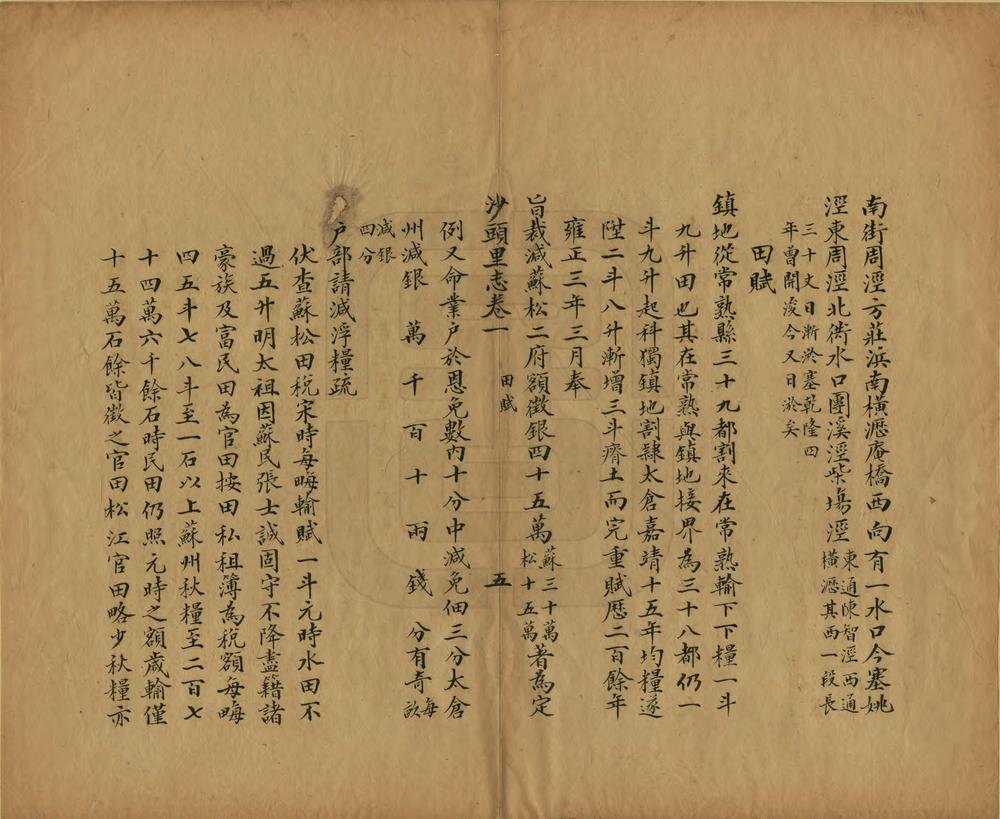 南街周涇方莊浜南橫瀝庵橋西向有一水口今塞姚
涇東周涇北街水口團溪涇柴場涇東通陳智涇西通橫瀝其西一段長
三十丈日漸淤塞乾隆四年曾開浚今又日淤矣
田賦
鎮地從常熟縣三十九都割來在常熟輸下下糧一斗
九升田也其在常熟與鎮地接界為三十八都仍一
斗九升起科獨鎮地割隸太倉嘉靖十五年均糧遂
陞二斗八升漸增三斗瘠土而完重賦歷二百餘年
雍正三年三月奉
旨裁減蘇松二府額徵銀四十五萬蘇三十萬松十五萬著為定
沙頭里志卷一 田賦 五
例又命業户於恩免數內十分中減免佃三分太倉
州減銀 萬 千 百 十 兩 錢 分有奇每畝
減銀四分
户部請減浮糧疏
伏查蘇松田稅宋時每畮輸賦一斗元時水田不
過五升明太祖因蘇民張士誠固守不降盡籍諸
豪族及富民田為官田按田私租簿為稅額每畮
四五斗七八斗至一石以上蘇州秋糧至二百七
十四萬六千餘石時民田仍照元時之額歲輸僅
十五萬石餘皆徵之官田松江官田略少秋糧亦